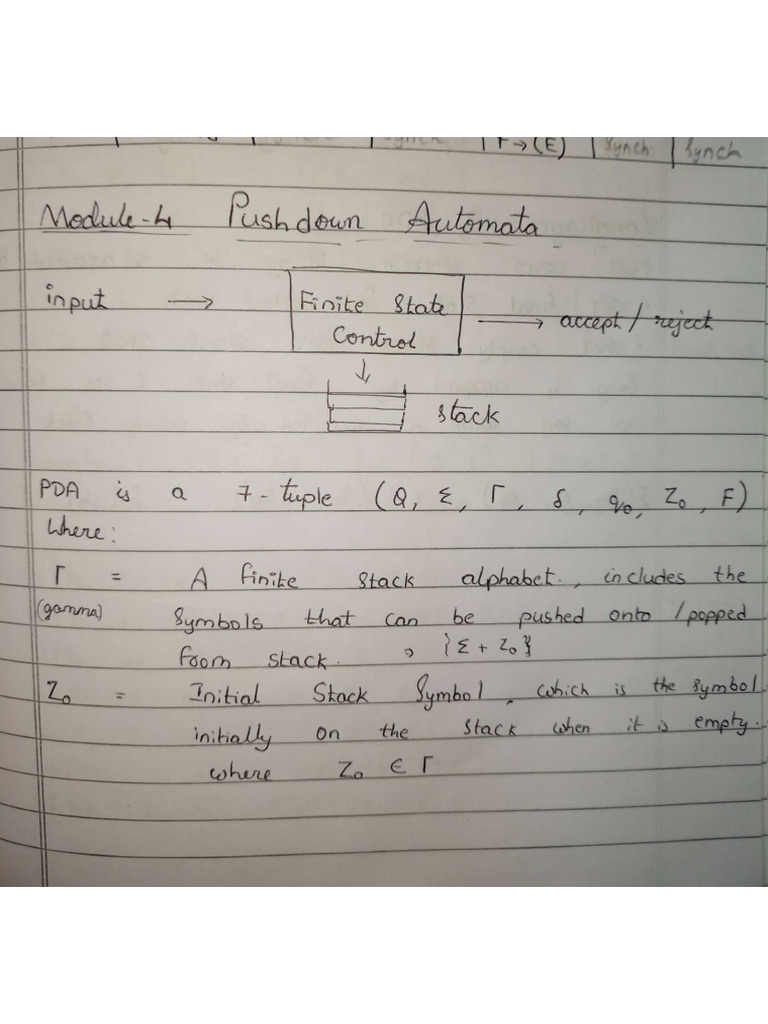 F → (E) | Synch | Synch
Module-4 Pushdown Automata
input → Finite State Control → accept / reject
↓
stack
PDA is a 7-tuple (Q, Σ, Γ, δ, q0, Z0, F)
Where:
Γ = A finite stack alphabet, includes the
(gamma) symbols that can be pushed onto / popped
from stack. → {Σ + Z0}
Z0 = Initial Stack Symbol, which is the symbol
initially on the stack when it is empty.
where Z0 ∈ Γ